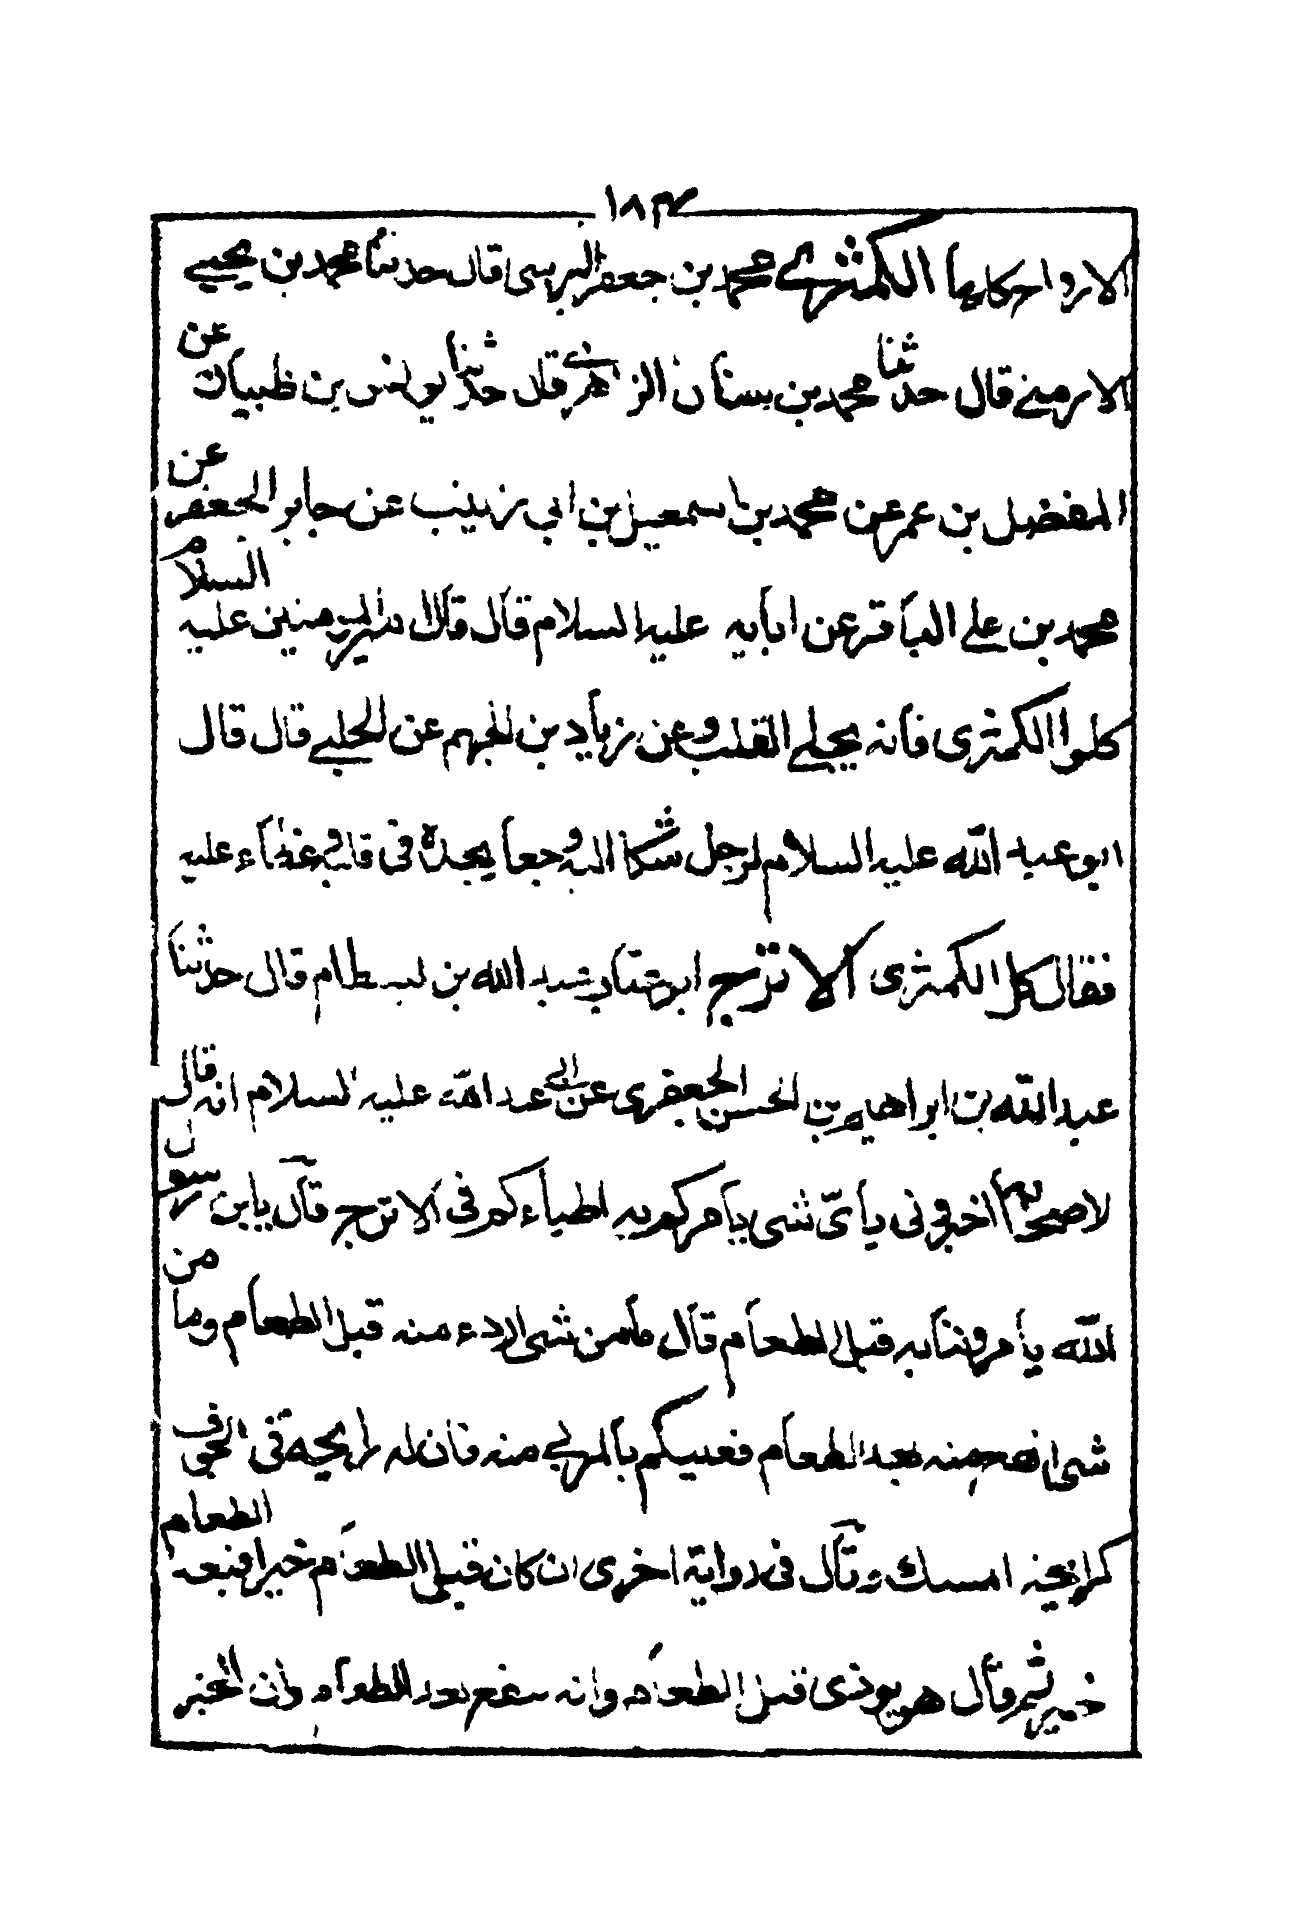 ١٨٣
الارواحكابها الكمثرے محمد بن جعفر البرسى قال حدثنا محمد بن يحيے
الارمنے قال حدثنا محمد بن سنان الزاهرے قال حدثنا يونس بن ظبيان عن
المفضل بن عمر عن محمد بن اسمعيل بن ابي زينب عن جابر الجعفے عن
محمد بن علے الباقر عن ابايه عليه السلام قال قال امير المومنين عليه السلام
كلوا الكمثرى فانه يجلے القلب وعن زياد بن الجهم عن الحلبے قال قال
ابو عبد الله عليه السلام لرجل شكا اليه وجعا يجده فى قلبه وغطاء عليه
فقال كل الكمثرى الاترج ابو عتاب عبد الله بن بسطام قال حدثنا
عبد الله بن ابراهيم بن الحسن الجعفرى عن ابے عبد الله عليه السلام انه قال
لاصحابه اخبرونى باىّ شى يامركم به اطباءكم فى الاترج قال يابن رسول
الله يامروننا به قبل الطعام قال ما من شى اردء منه قبل الطعام وما من
شى انفع منه بعد الطعام فعليكم بالمربے منه فان له رايحه فى الجوف
كرايحة المسك وقال فى رواية اخرى ان كان قبل الطعام خير فبعد الطعام
خير ثم قال هو يوذى قبل الطعام وانه ينفع بعد الطعام وان الجبن